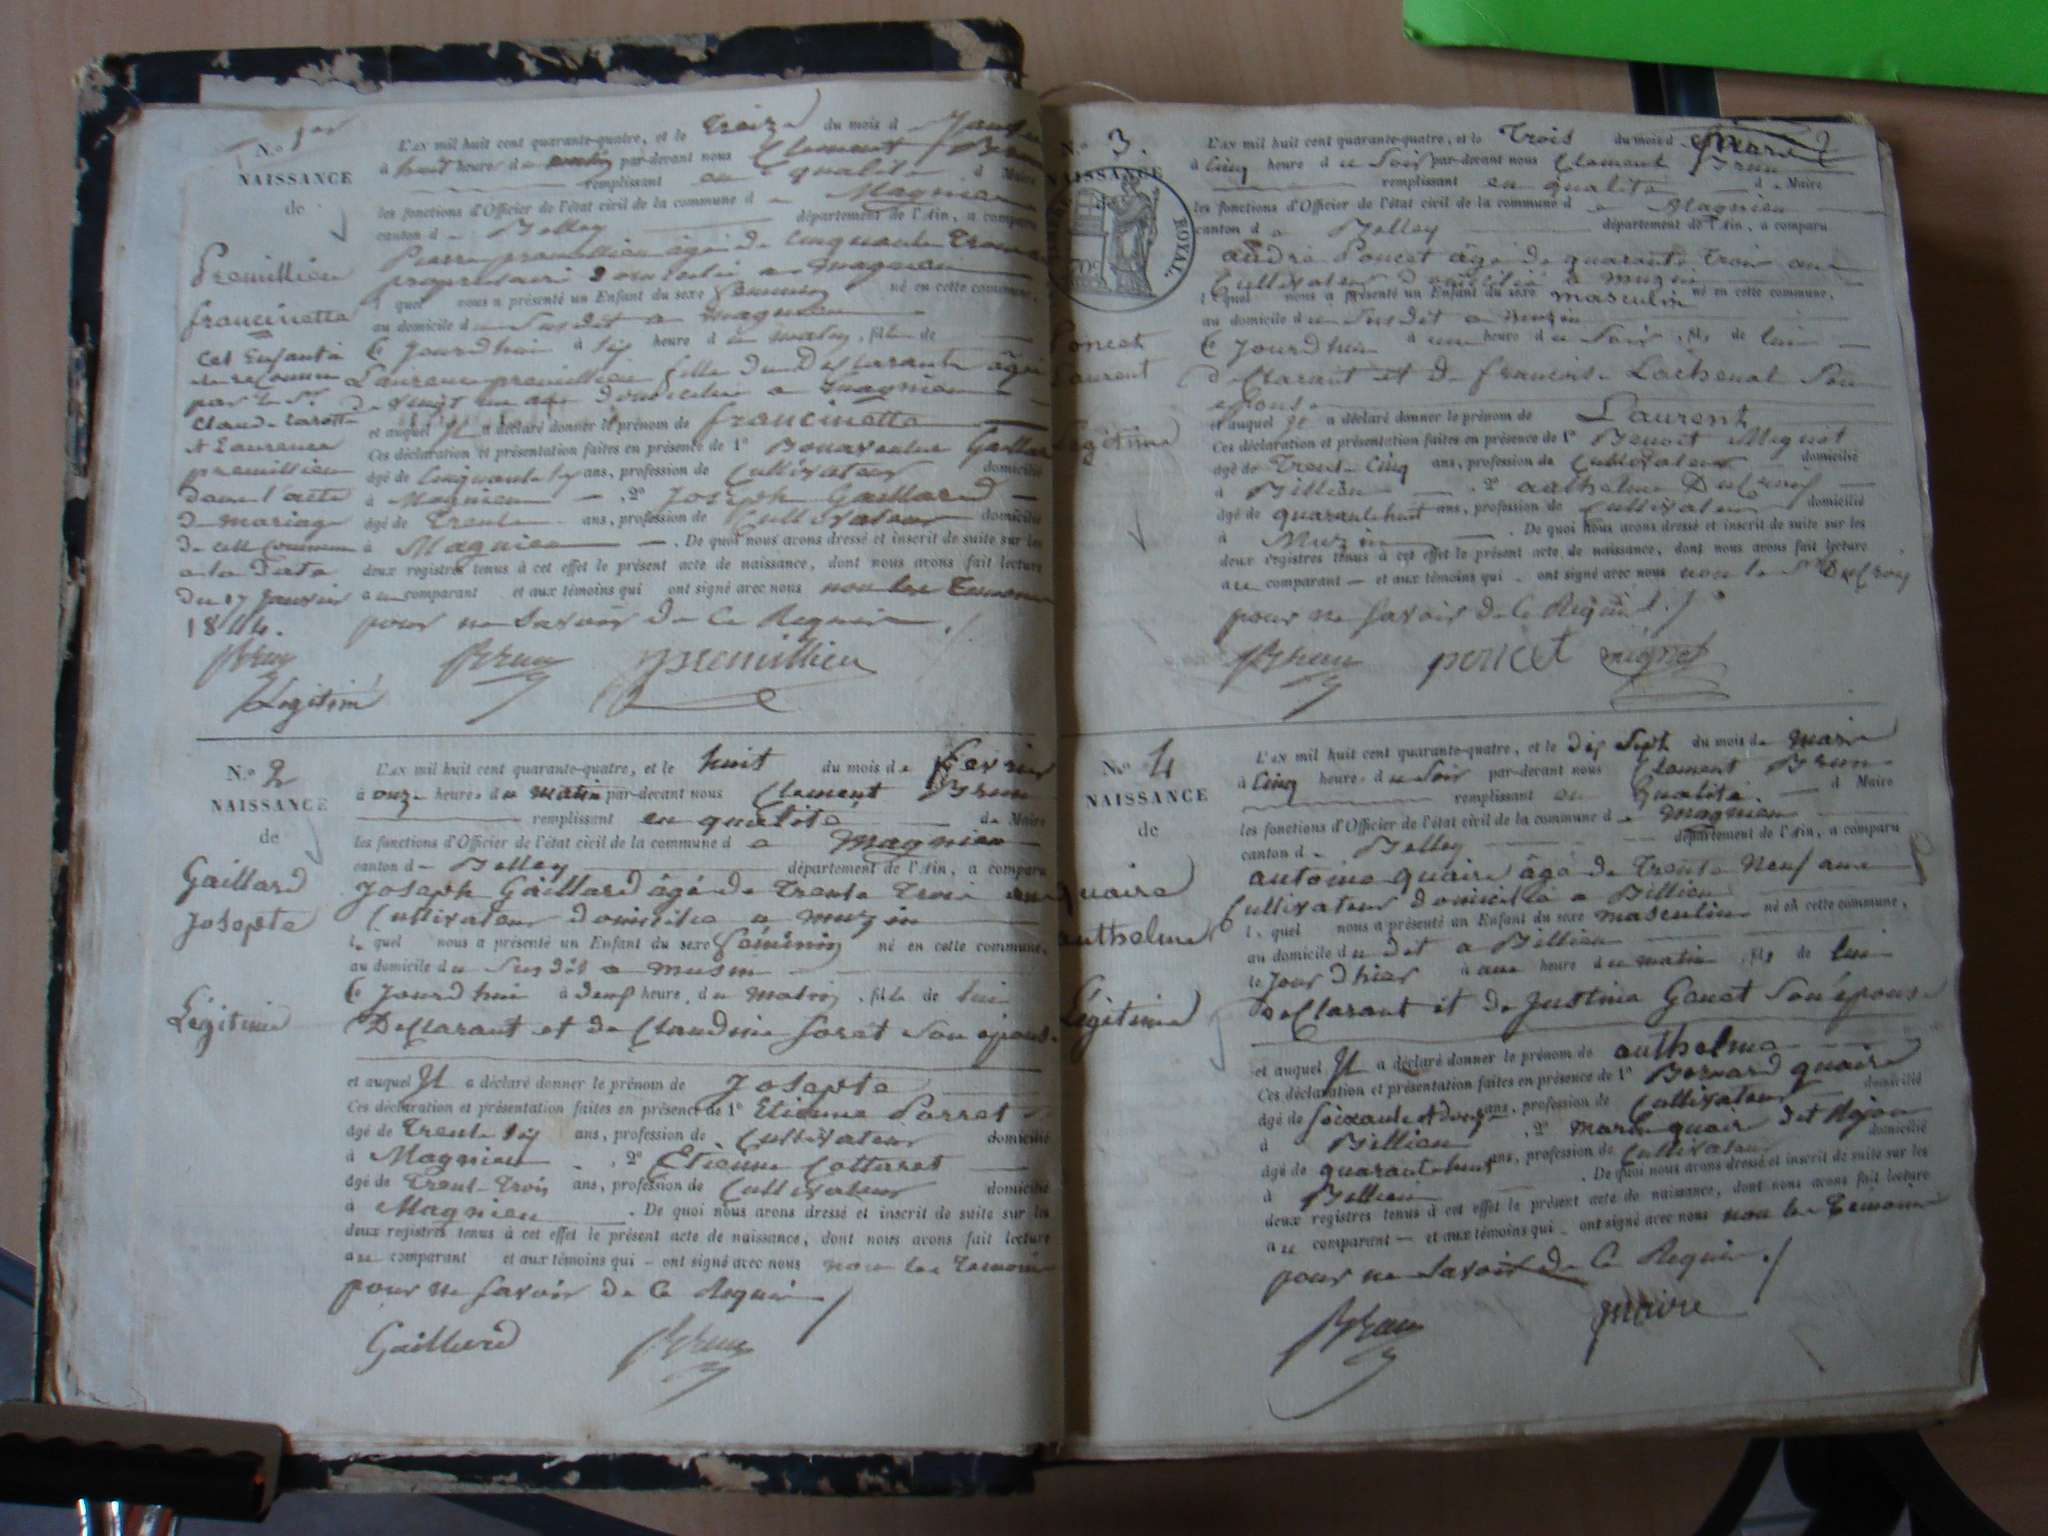 N.o 1er
NAISSANCE
de
Premillieu
francinette
Cet Enfant a
par le Sr
Claude
et Laurence
premillieu
dans l'acte
de mariage
de cette Commune
a la Date
du 17 Janvier
1844.
Brun
Légitimé
L'AN mil huit cent quarante-quatre, et le Treize du mois d
à huit heure du matin par-devant nous Clement Brun
remplissant en qualité d Maire
les fonctions d'Officier de l'état civil de la commune d e Magnieu
canton d e Belley département de l'Ain, a comparu
Pierre premillieu âgé de cinquante trois
propriétaire Domicilié a magnieu
l quel nous a présenté un Enfant du sexe feminin né en cette commune,
au domicile du Susdit a magnieu
Ce Jourdhui à six heure du matin, fille de
Laurence premillieu fille du Déclarante âgée
de vingt un ans Domiciliée a magnieu
et auquel Il a déclaré donner le prénom de francinette
Ces déclaration et présentation faites en présence de 1o Bonaventure Gaillard
âgé de ans, profession de Cultivateur domicilié
à Magnieu , 2o Joseph Gaillard
âgé de Trente ans, profession de Cultivateur domicilié
à Magnieu . De quoi nous avons dressé et inscrit de suite sur les
deux registres tenus à cet effet le présent acte de naissance, dont nous avons fait lecture
au comparant et aux témoins qui ont signé avec nous non les Temoins
pour ne Savoir de Ce Requis ./
Brun premillieu
N.o 2
NAISSANCE
de
Gaillard
Josephte
Légitime
L'AN mil huit cent quarante-quatre, et le huit du mois de fevrier
à onze heures du matin par-devant nous Clement Brun
remplissant en qualité de Maire
les fonctions d'Officier de l'état civil de la commune d e magnieu
canton d e Belley département de l'Ain, a comparu
Joseph Gaillard âgé de Trente Trois ans
Cultivateur domicilié a muzin
le quel nous a présenté un Enfant du sexe féminin né en cette commune,
au domicile du Susdit a musin
Ce Jourdhui à deux heure du matin, fille de lui
Déclarant et de Claudine foret Son épouse
et auquel Il a déclaré donner le prénom de Josephte
Ces déclaration et présentation faites en présence de 1o Etienne Parret
âgé de Trente Six ans, profession de Cultivateur domicilié
à Magnieu , 2o Etienne Cottaret
âgé de Trente Trois ans, profession de Cultivateur domicilié
à Magnieu . De quoi nous avons dressé et inscrit de suite sur les
deux registres tenus à cet effet le présent acte de naissance, dont nous avons fait lecture
au comparant et aux témoins qui ont signé avec nous non les Temoins
pour ne Savoir de Ce Requis /
Gaillard Brun
N.o 3.
NAISSANCE
ROYAL
Poncet
Laurent
Légitime
L'AN mil huit cent quarante-quatre, et le Trois du mois d
à Cinq heure d u Soir par-devant nous Clement Brun
remplissant en qualité d e Maire
les fonctions d'Officier de l'état civil de la commune d e Magnieu
canton d e Belley département de l'Ain, a comparu
andré Poncet âgé de quarante Trois ans
Cultivateur Domicilié a muzin
l quel nous a présenté un Enfant du sexe masculin né en cette commune,
au domicile d u Susdit a muzin
Ce Jourdhui à une heure d u Soir, fils de lui
declarant et de francoise Lachenal Son
epouse
et auquel Il a déclaré donner le prénom de Laurent
Ces déclaration et présentation faites en présence de 1o Benoit Mignet
âgé de Trente Cinq ans, profession de Cultivateur domicilié
à Billieu , 2o anthelme
âgé de quarante huit ans, profession de Cultivateur domicilié
à Muzin . De quoi nous avons dressé et inscrit de suite sur les
deux registres tenus à cet effet le présent acte de naissance, dont nous avons fait lecture
au comparant et aux témoins qui ont signé avec nous non le Sr
pour ne Savoir de Ce Requis ./
Brun poncet mignet
N.o 4
NAISSANCE
de
quaire
anthelme
Légitime
L'AN mil huit cent quarante-quatre, et le dix Sept du mois de mars
à Cinq heures du Soir par-devant nous Clement Brun
remplissant en Qualité de Maire
les fonctions d'Officier de l'état civil de la commune d e magnieu
canton d e Belley département de l'Ain, a comparu
antoine quaire âgé de Trente Neuf ans
Cultivateur Domicilié a Billieu
le quel nous a présenté un Enfant du sexe masculin né en cette commune,
au domicile du dit a Billieu
le Jour dhier à une heure du matin, fils de lui
Declarant et de Justine Genet Son épouse
et auquel Il a déclaré donner le prénom de anthelme
Ces déclaration et présentation faites en présence de 1o Bernard quaire
âgé de Soixante et douze ans, profession de Cultivateur domicilié
à Billieu , 2o marin quaire dit
âgé de quarante huit ans, profession de Cultivateur domicilié
à Billieu . De quoi nous avons dressé et inscrit de suite sur les
deux registres tenus à cet effet le présent acte de naissance, dont nous avons fait lecture
au comparant et aux témoins qui ont signé avec nous non les Témoins
pour ne Savoir de Ce Requis ./
Brun quaire